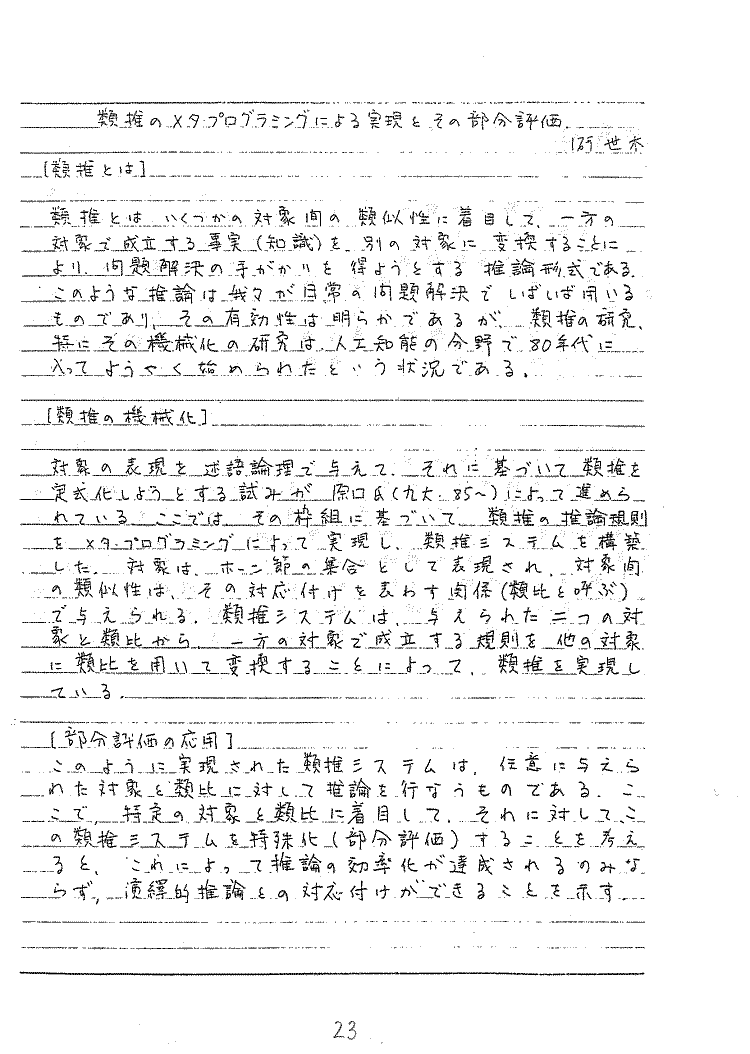 類推のメタ・プログラミングによる実現とその部分評価
世木
[類推とは]
類推とは いくつかの対象間の類似性に着目して、一方の
対象で成立する事実(知識)を、別の対象に変換することに
より、問題解決の手がかりを得ようとする推論形式である.
このような推論は我々が日常の問題解決でしばしば用いる
ものであり、その有効性は明らかであるが、類推の研究、
特にその機械化の研究は、人工知能の分野で80年代に
入ってようやく始められたという状況である.
[類推の機械化]
対象の表現を述語論理で与えて、それに基づいて類推を
定式化しようとする試みが 原口氏(九大・85〜)によって進めら
れている. ここでは、その枠組に基づいて、類推の推論規則
をメタ・プログラミングによって実現し、類推システムを構築
した. 対象は、ホーン節の集合として表現され、対象間
の類似性は、その対応付けを表わす関係(類比と呼ぶ)
で与えられる. 類推システムは、与えられた二つの対
象と類比から、一方の対象で成立する規則を他の対象
に類比を用いて変換することによって、類推を実現し
ている.
[部分評価の応用]
このように実現された類推システムは、任意に与えら
れた対象と類比に対して推論を行なうものである. こ
こで、特定の対象と類比に着目して、それに対してこ
の類推システムを特殊化(部分評価)することを考え
ると、これによって推論の効率化が達成されるのみな
らず、演繹的推論との対応付けができることを示す.
23